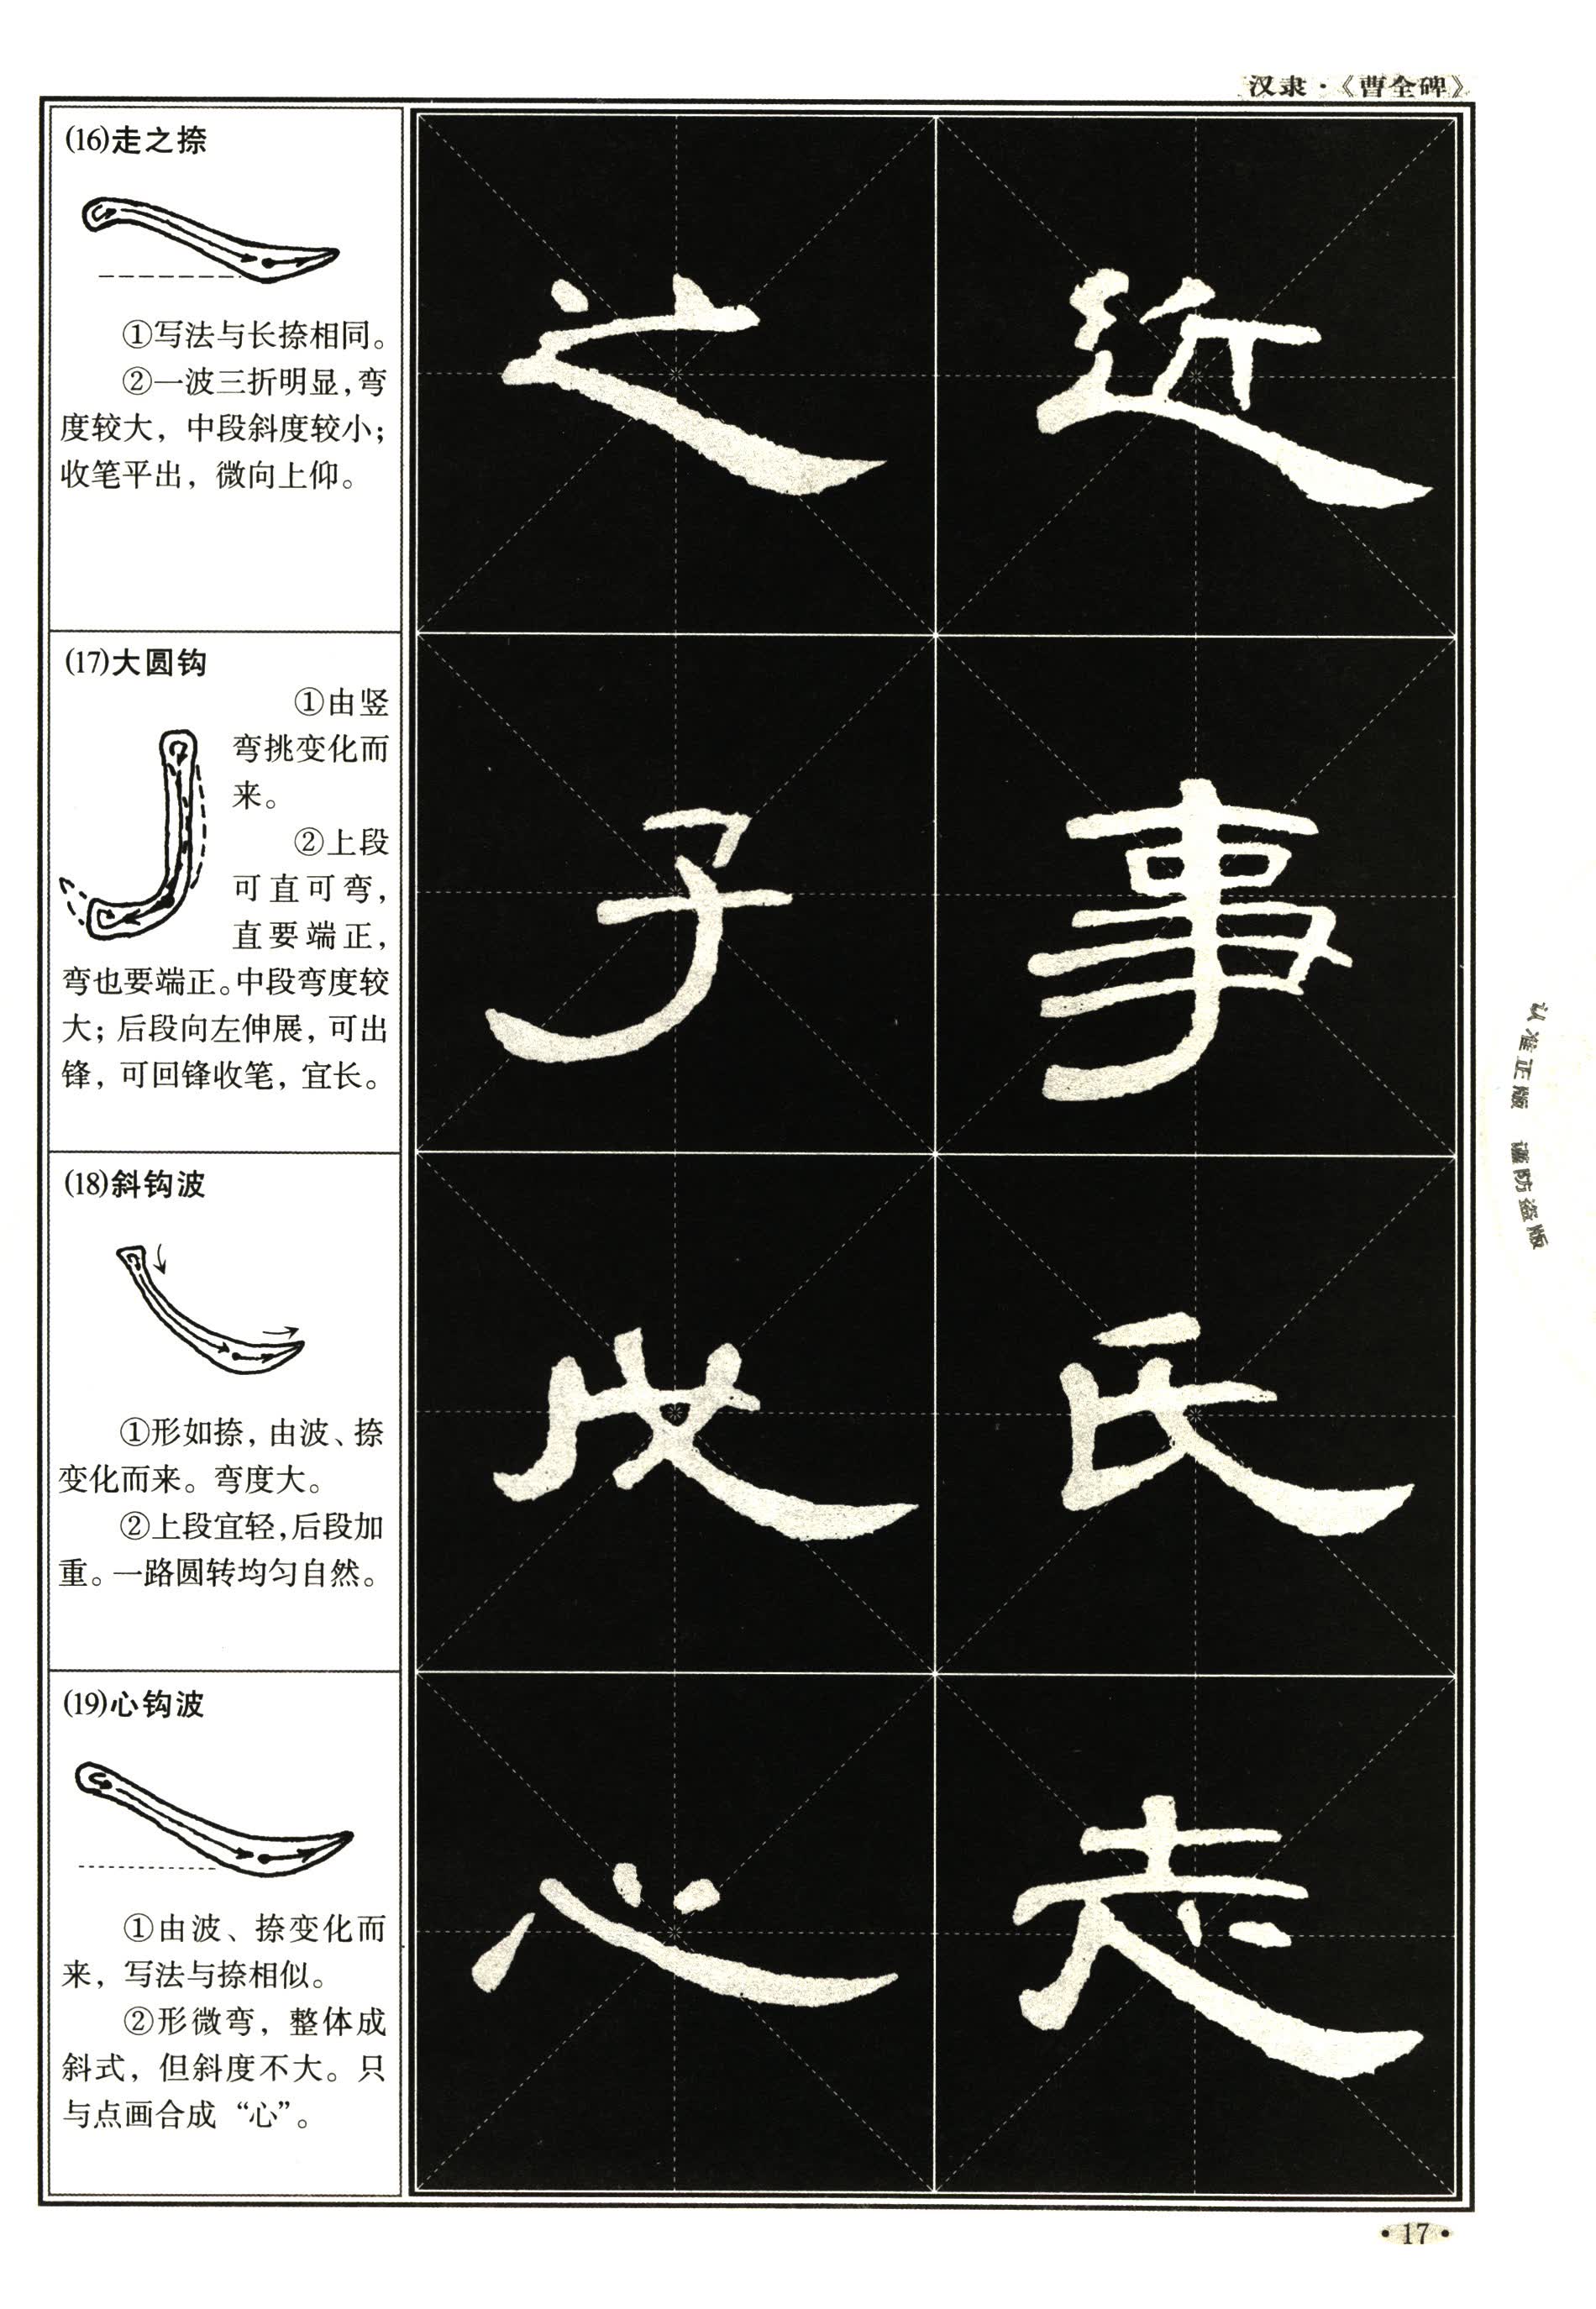 汉隶·《曹全碑》
(16)走之捺
①写法与长捺相同。
②一波三折明显,弯
度较大，中段斜度较小；
收笔平出，微向上仰。
之 近
(17)大圆钩
①由竖
弯挑变化而
来。
②上段
可直可弯，
直要端正，
弯也要端正。中段弯度较
大；后段向左伸展，可出
锋，可回锋收笔，宜长。
子 事
(18)斜钩波
①形如捺，由波、捺
变化而来。弯度大。
②上段宜轻,后段加
重。一路圆转均匀自然。
戊 氏
(19)心钩波
①由波、捺变化而
来，写法与捺相似。
②形微弯，整体成
斜式，但斜度不大。只
与点画合成“心”。
心 志
认准正版 谨防盗版
·17·